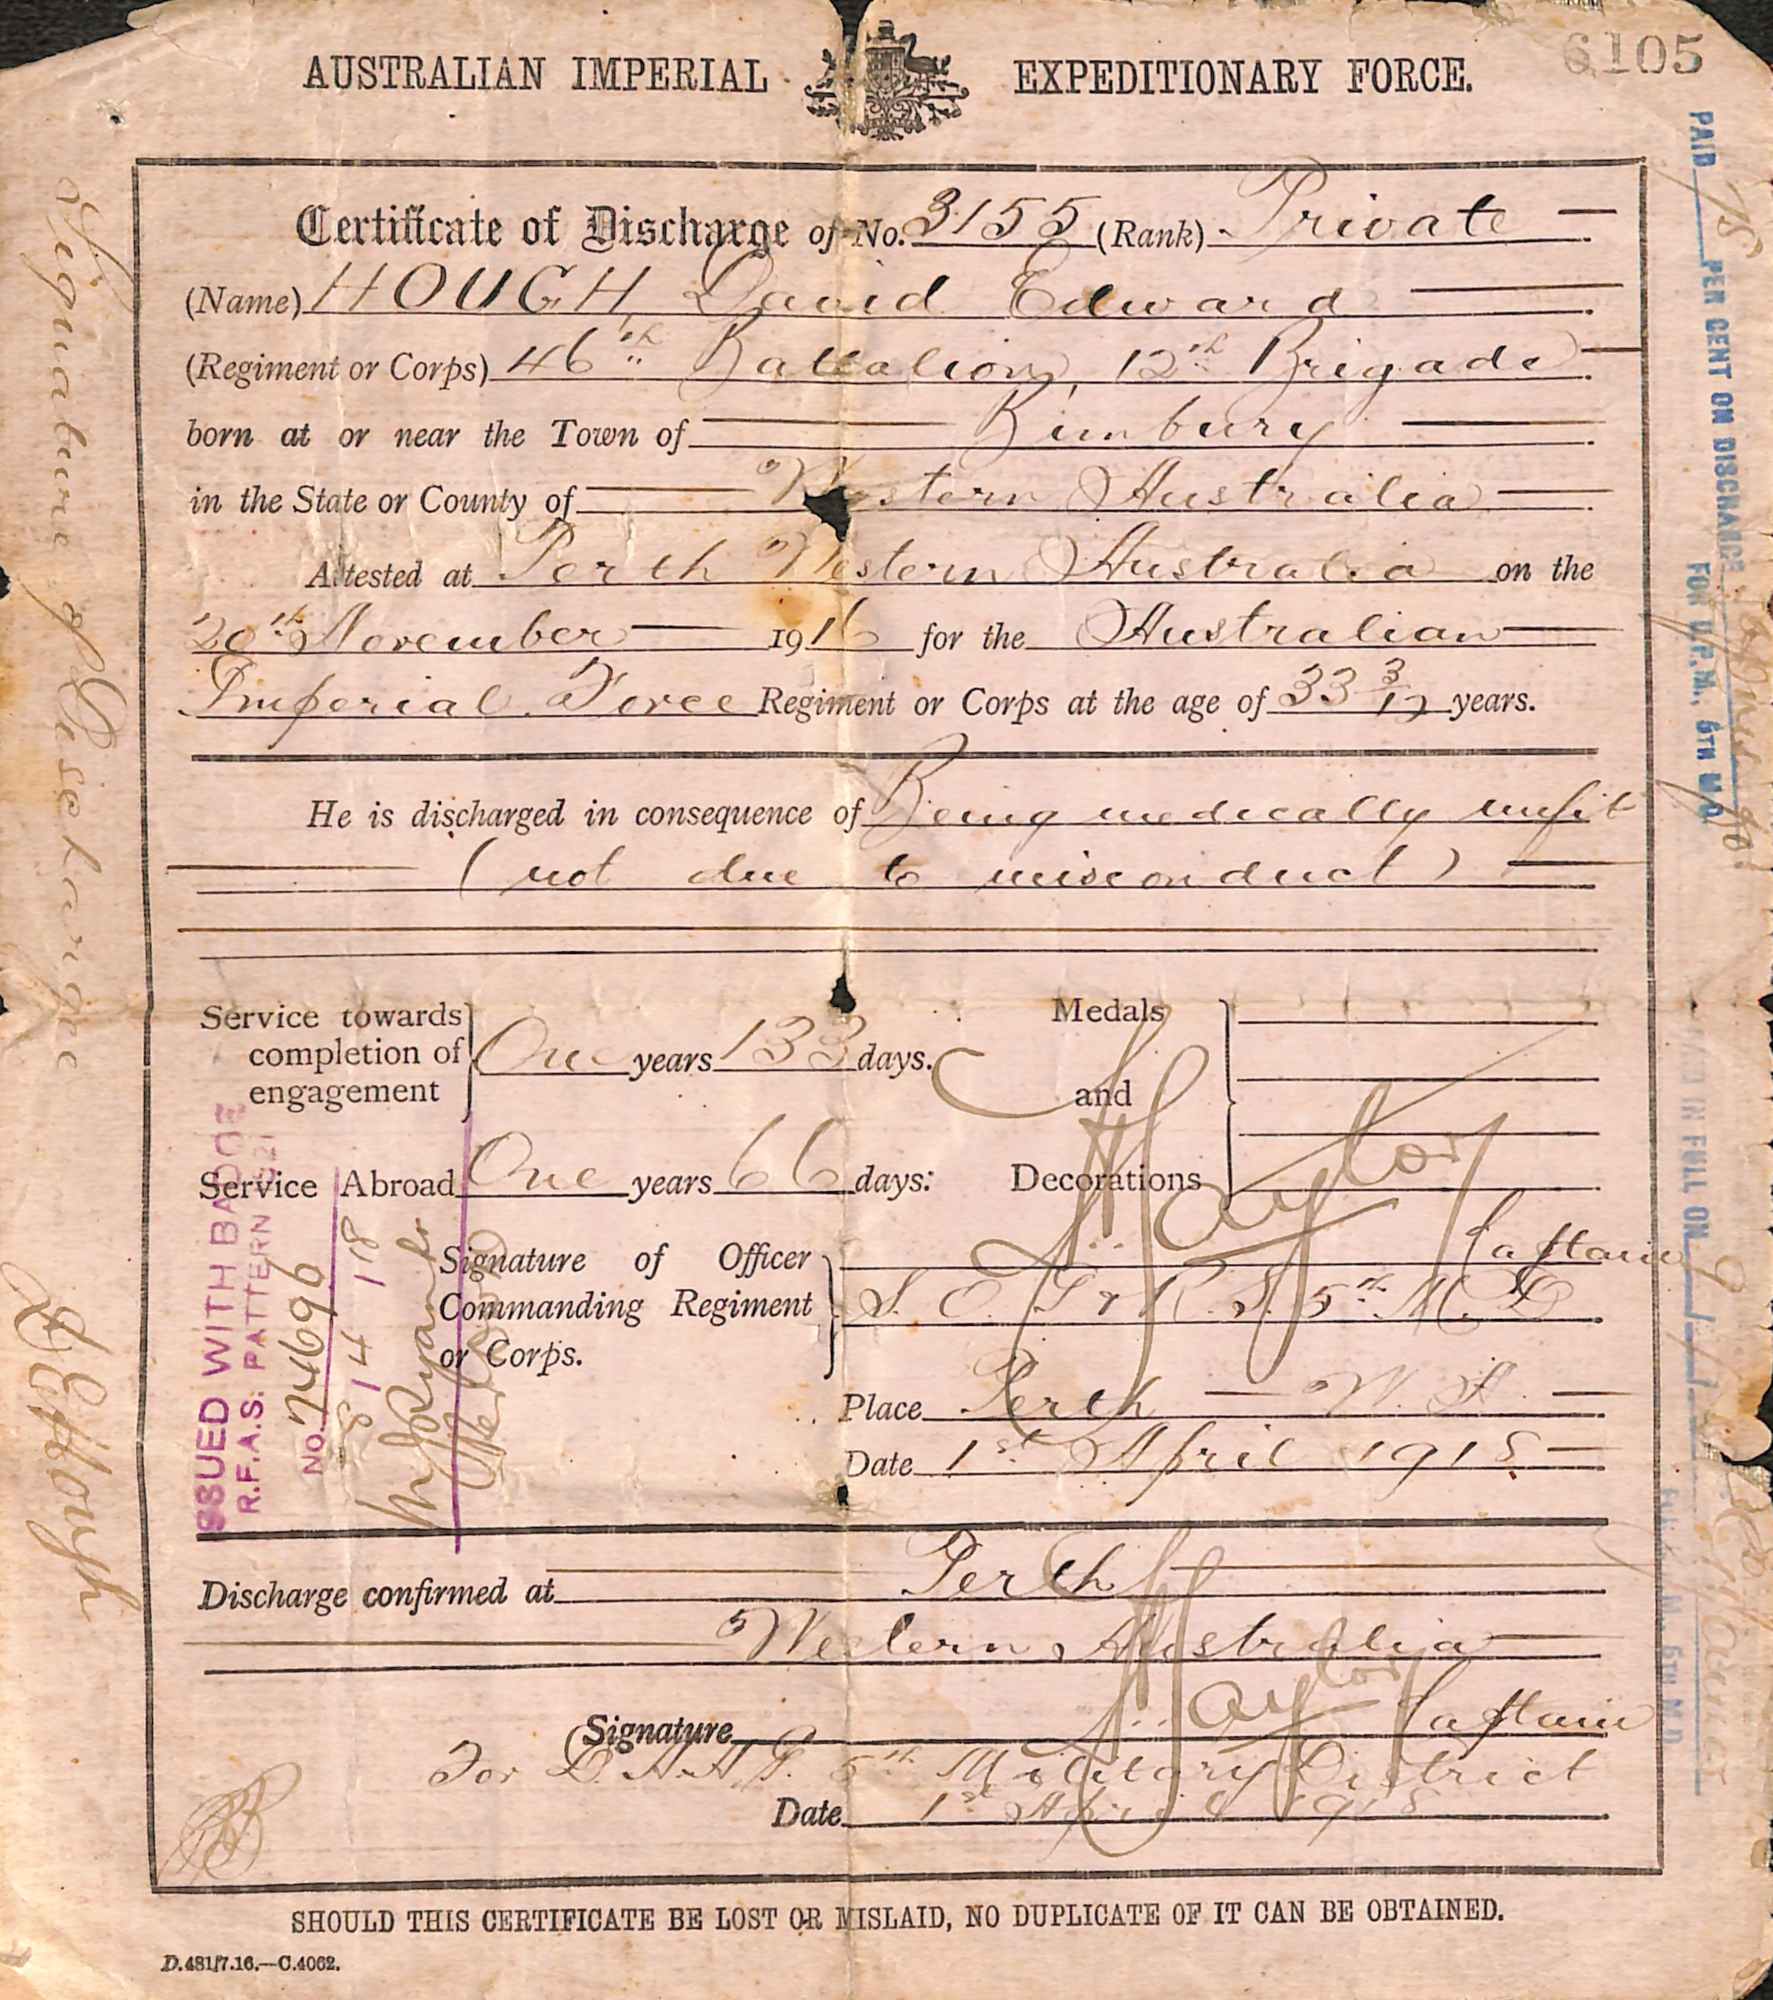 6105
AUSTRALIAN IMPERIAL EXPEDITIONARY FORCE.
Certificate of Discharge of No. 3155 (Rank) Private
(Name) HOUGH, David Edward
(Regiment or Corps) 46th Battalion, 12th Brigade
born at or near the Town of Bunbury
in the State or County of Western Australia
Attested at Perth Western Australia on the
20th November 1916 for the Australian
Imperial Force Regiment or Corps at the age of 33 3/12 years.
He is discharged in consequence of Being medically unfit
(not due to misconduct)
Service towards completion of engagement One years 133 days.
Medals and Decorations
Service Abroad One years 66 days:
Signature of Officer Commanding Regiment or Corps.
Naylor Captain
S. O. I & R. S. 5th M. D
Place Perth W. A.
Date 1st April 1918
Discharge confirmed at Perth
Western Australia
Signature Naylor Captain
For D. A. A. G. 5th Military District
Date 1st April 1918
SHOULD THIS CERTIFICATE BE LOST OR MISLAID, NO DUPLICATE OF IT CAN BE OBTAINED.
D.481/7.16.—C.4062.
Signature of Discharge D E Hough
ISSUED WITH BADGE
R.F.A.S. PATTERN
NO. 74696
PAID 75 PER CENT ON DISCHARGE
FOR D.P.M., 5TH M.D.
PAID IN FULL ON
5TH M.D.